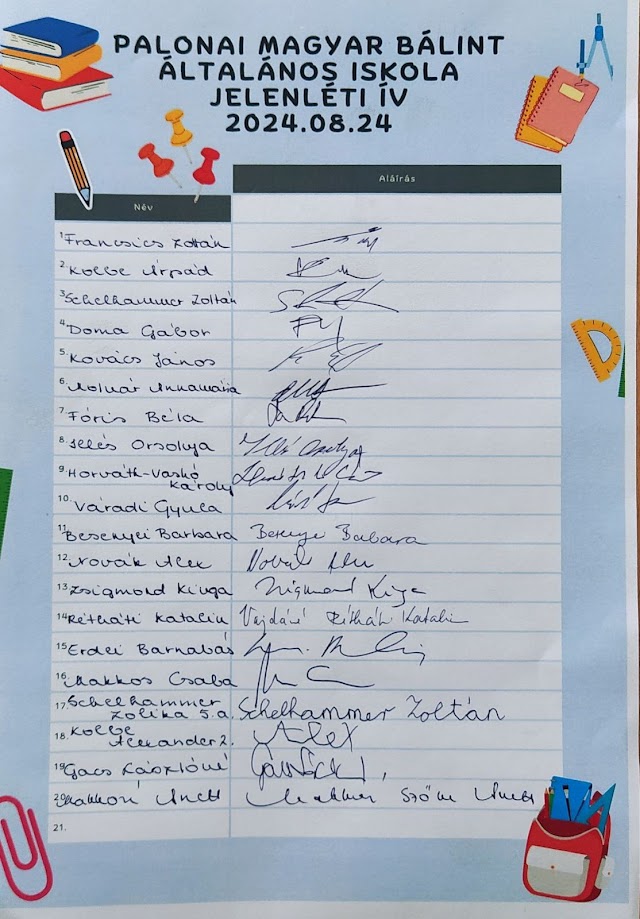 PALONAI MAGYAR BÁLINT
ÁLTALÁNOS ISKOLA
JELENLÉTI ÍV
2024.08.24
Név Aláírás
1 Francsics Zoltán
2. Kolbe Árpád
3. Schelhammer Zoltán
4. Doma Gábor
5. Kovács János
6. Molnár Annamária
7 Fóris Béla
8. Illés Orsolya Illés Orsolya
9. Horváth-Vaskó
Károly
10. Váradi Gyula
11 Besenyei Barbara Besenyei Barbara
12. Novák Alex Novák Alex
13 Zsigmond Kinga Zsigmond Kinga
14 Rétháti Katalin Vajdáné Rétháti Katalin
15 Erdei Barnabás
16. Makkos Csaba
17. Schelhammer
Zolika 5.a. Schelhammer Zoltán
18. Kolbe
Alexander 2. Alex
19 Gacs Lászlóné
20. Anett Anett
21.